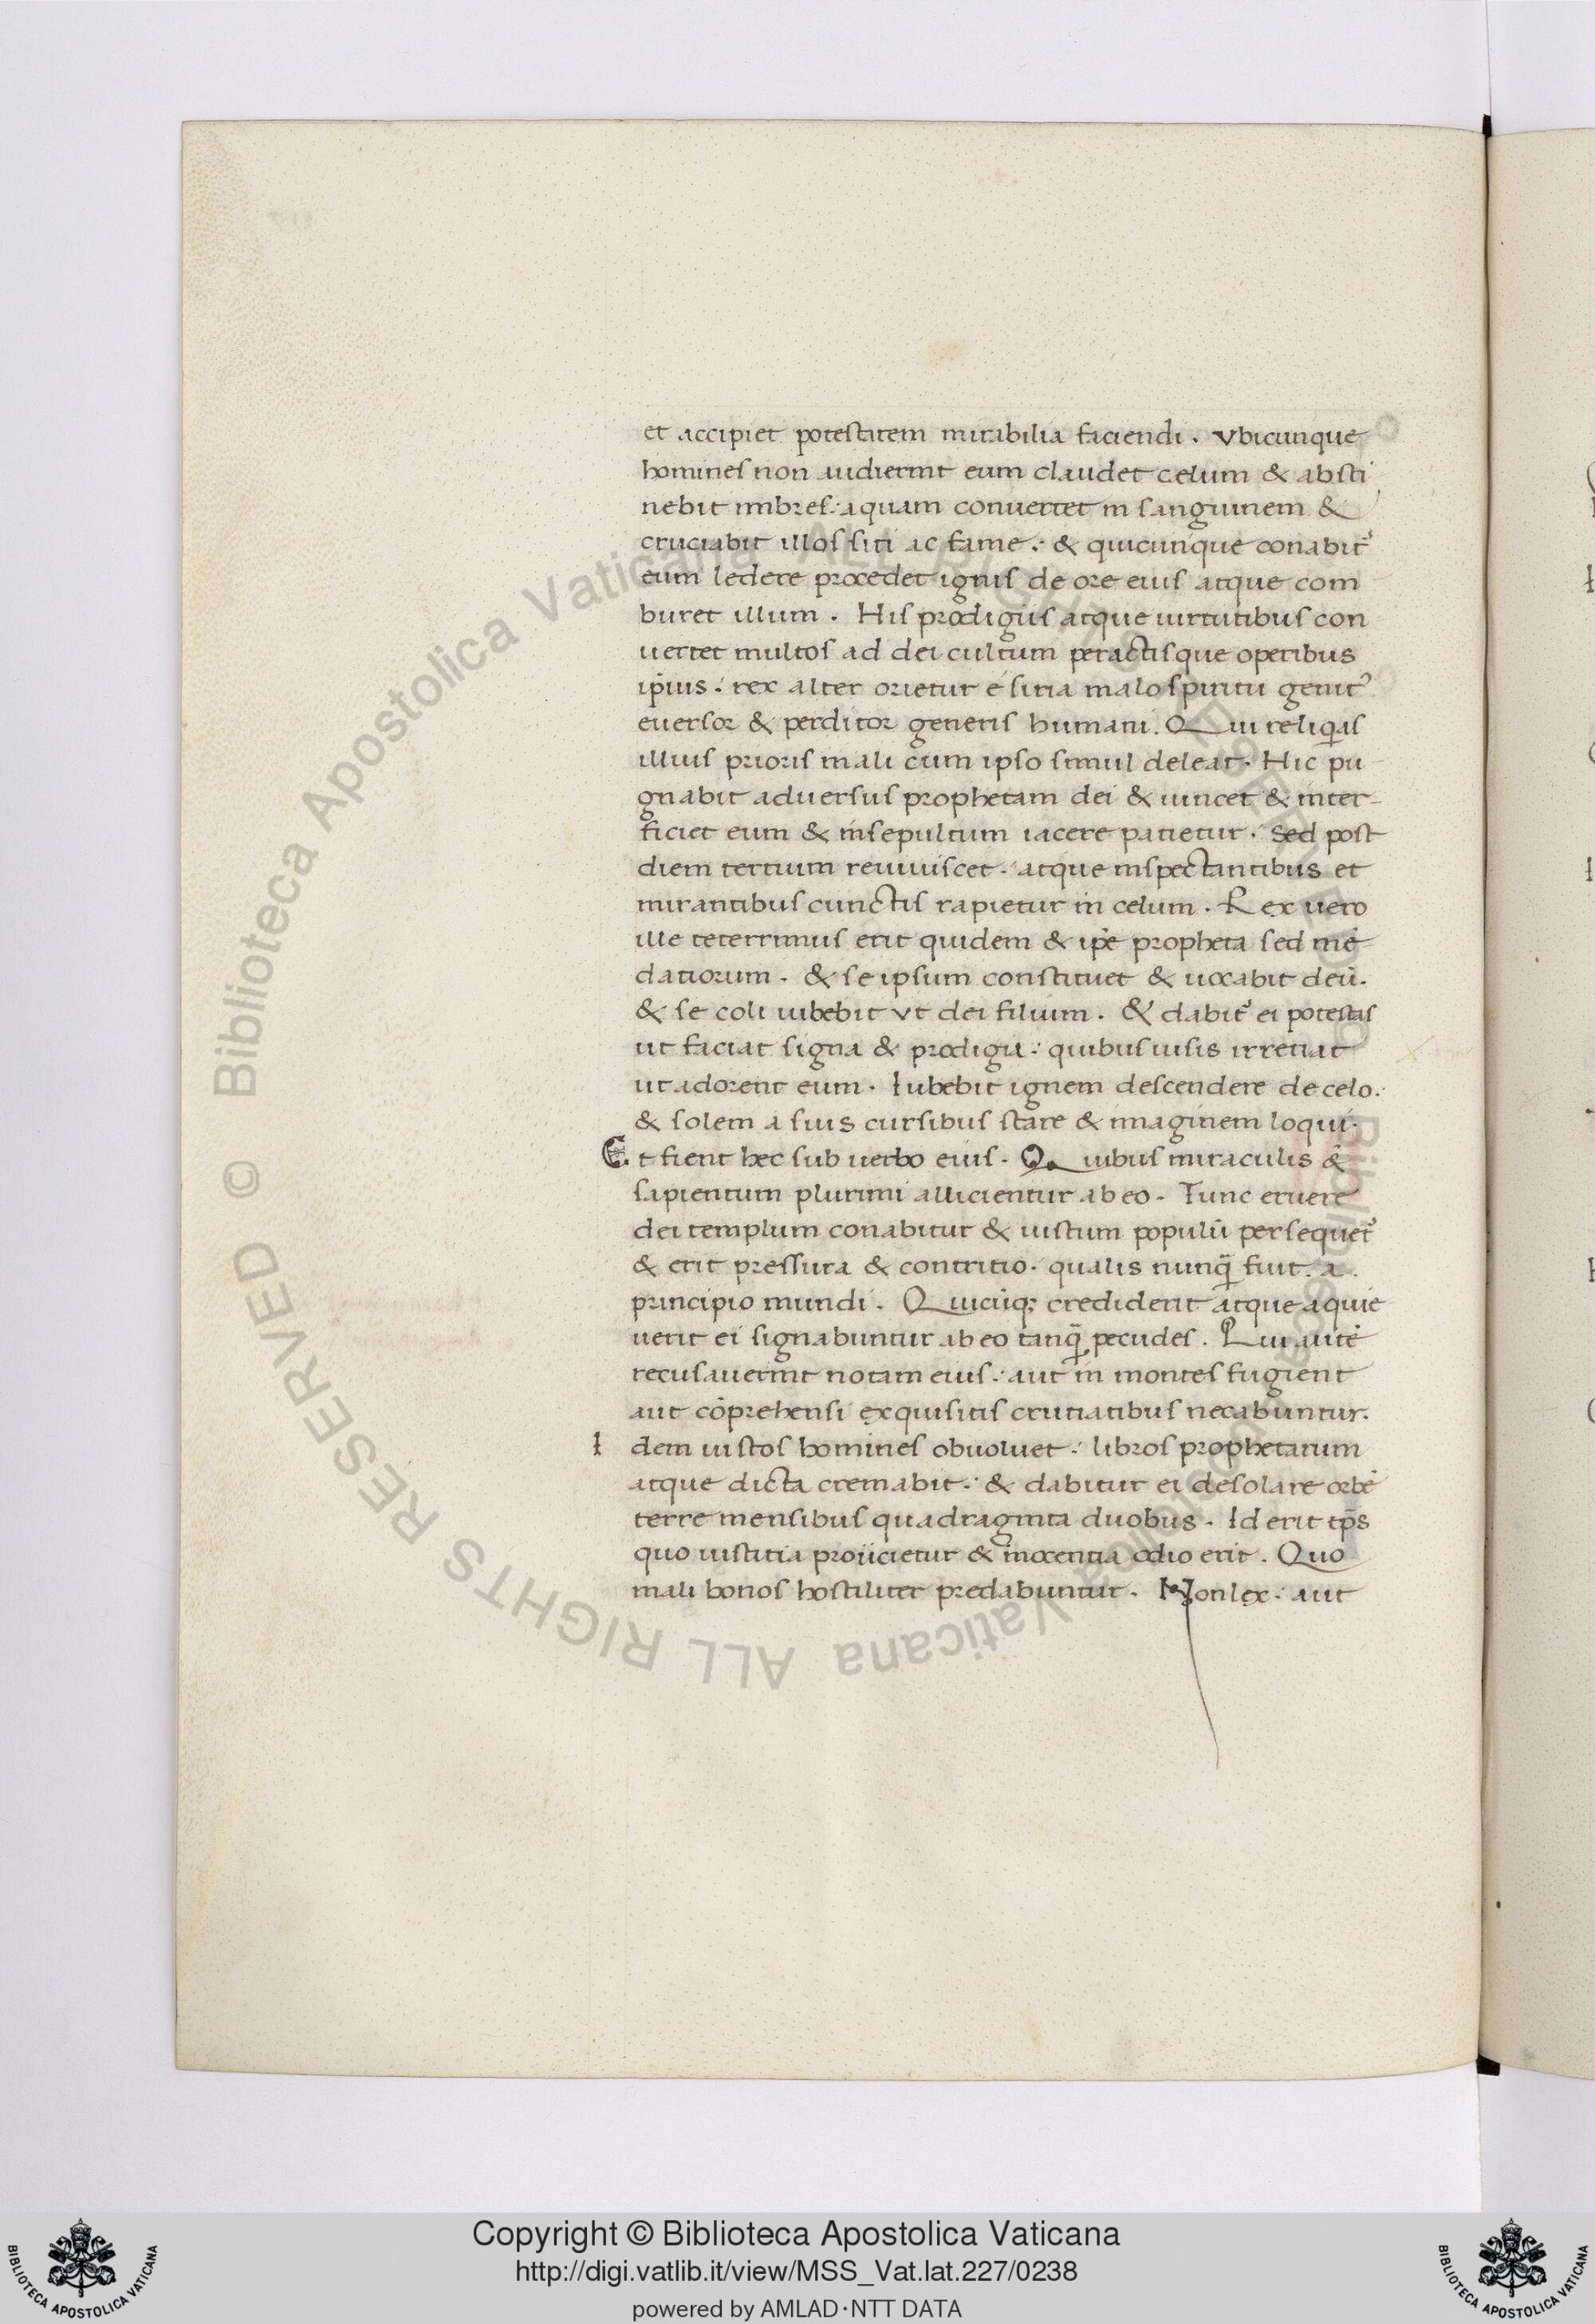 et accipiet potestatem mirabilia faciendi. Vbicunque
homines non audierint eum claudet celum & absti
nebit imbres: aquam convertet in sanguinem &
cruciabit illos siti ac fame: & quicunque conabit᷑
eum ledere procedet ignis de ore eius atque com
buret illum. His prodigiis atque uirtutibus con
uertet multos ad dei cultum peractisque operibus
ip̄ius: rex alter orietur e siria malo spiritu genit᷒
eversor & perditor generis humani. Qui reliq̄as
illius prioris mali cum ipso simul deleat. Hic pu
gnabit adversus prophetam dei & uincet & inter-
ficiet eum & insepultum iacere patietur. Sed post
diem tertium reuiuiscet: atque inspectantibus et
mirantibus cunctis rapietur in celum. Rex uero
ille teterrimus erit quidem & ip̄e propheta sed mē
datiorum. & se ipsum constituet & uocabit deū.
& se coli iubebit vt dei filium. & dabit᷑ ei potestas
ut faciat signa & prodigia: quibus uisis irretiat
ut adorent eum. Iubebit ignem descendere de celo:
& solem a suis cursibus stare & imaginem loqui.
Et fient hec sub uerbo eius. Quibus miraculis &
sapientum plurimi allicientur ab eo. Tunc eruere
dei templum conabitur & iustum populū persequet᷑
& erit pressura & contritio. qualis nunq̄ fuit. a.
principio mundi. Quicūq; crediderit atque aquie
uerit ei signabuntur ab eo tanq̄ pecudes. Qui autē
recusauerint notam eius: aut in montes fugient
aut cōprehensi exquisitis crutiatibus necabuntur.
Idem iustos homines obvoluet: libros prophetarum
atque dicta cremabit: & dabitur ei desolare orbē
terre mensibus quadraginta duobus. Id erit tp̄s
quo iustitia proiicietur & inocentia odio erit. Quo
mali bonos hostiliter predabuntur. Non lex: aut
© Biblioteca Apostolica Vaticana ALL RIGHTS RESERVED
© Biblioteca Apostolica Vaticana ALL RIGHTS RESERVED
Copyright © Biblioteca Apostolica Vaticana
http://digi.vatlib.it/view/MSS_Vat.lat.227/0238
powered by AMLAD·NTT DATA
BIBLIOTECA APOSTOLICA VATICANA
BIBLIOTECA APOSTOLICA VATICANA